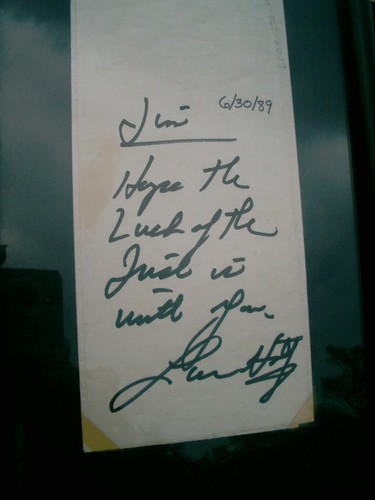 Jim 6/30/89
Hope the
Luck of the
Irish is
with you.